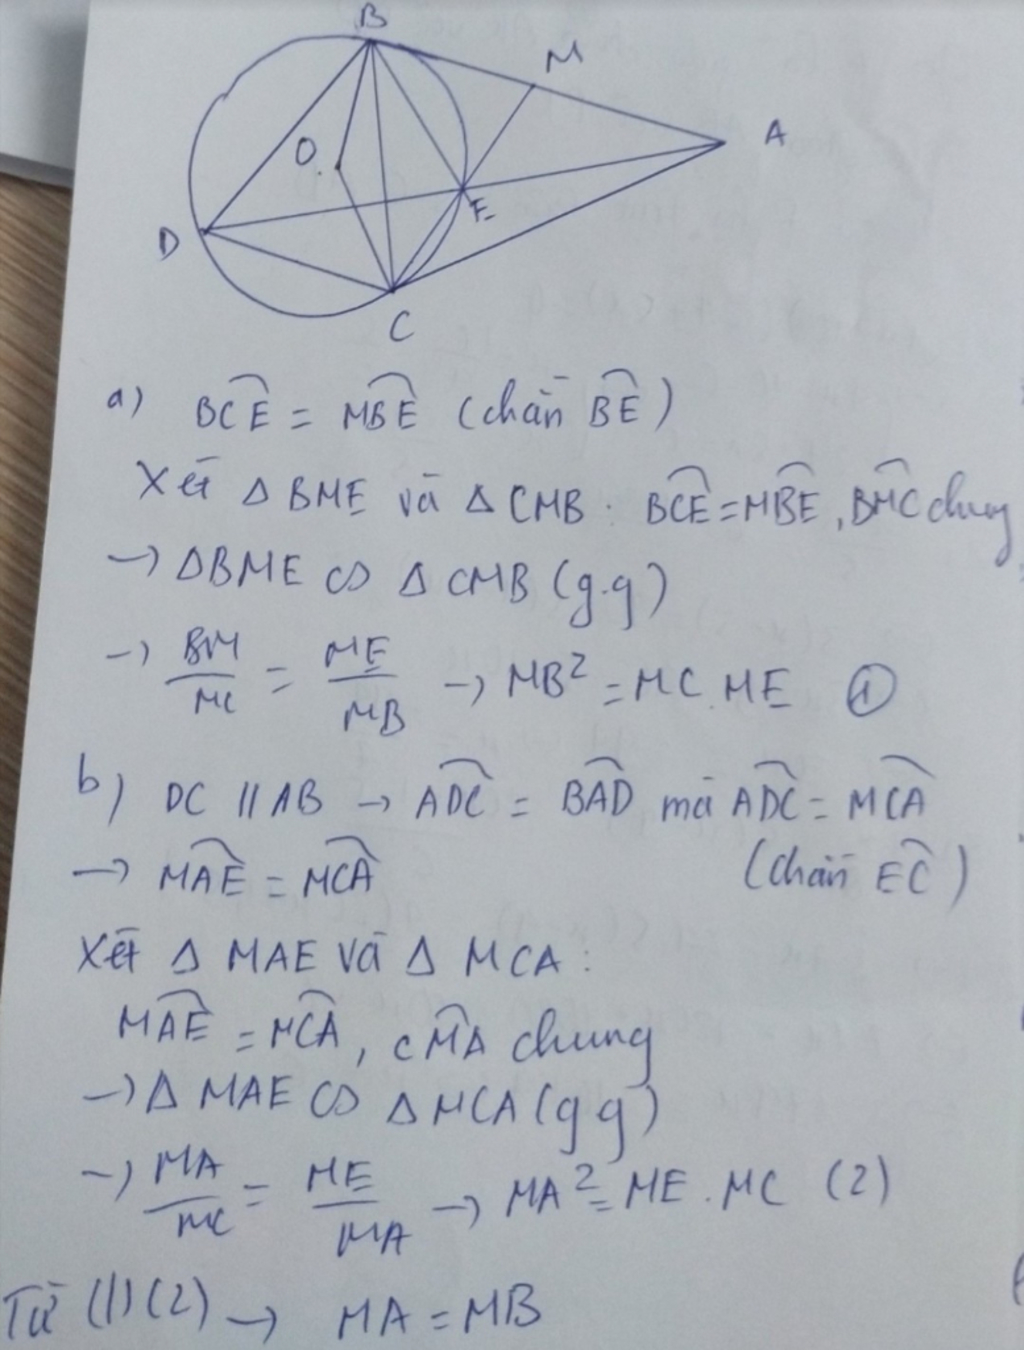 B
M
A
O
E
D
C
a) BĈE = MB̂E (chắn BE)
Xét Δ BME và Δ CMB : BĈE = MB̂E, BM̂C chung
→ ΔBME ∽ Δ CMB (g.g)
→ BM/MC = ME/MB → MB² = MC.ME ①
b) DC // AB → AD̂C = BÂD mà AD̂C = MĈA
(chắn EC)
→ MÂE = MĈA
Xét Δ MAE và Δ MCA :
MÂE = MĈA, CM̂A chung
→ Δ MAE ∽ Δ MCA (g g)
→ MA/MC = ME/MA → MA² = ME . MC (2)
Từ (1) (2) → MA = MB